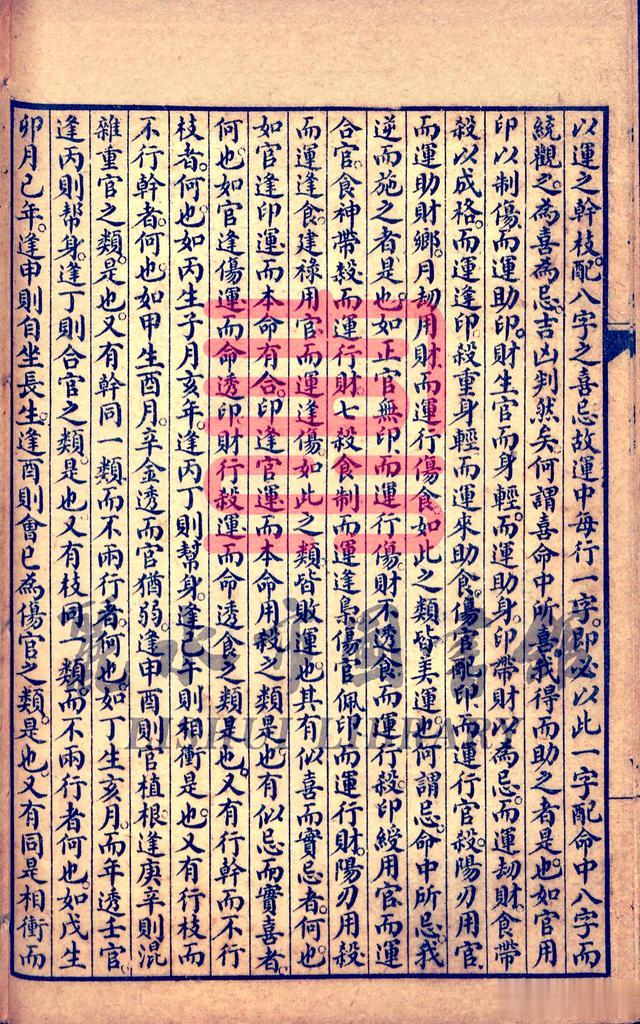 以運之幹枝。配八字之喜忌。故運中每行一字。即必以此一字配命中八字而
統觀之。為喜為忌。吉凶判然矣。何謂喜。命中所喜。我得而助之者是也。如官用
印以制傷。而運助印。財生官而身輕。而運助身。印帶財以為忌。而運劫財。食帶
殺以成格。而運逢印。殺重身輕。而運來助食。傷官配印。而運行官殺。陽刃用官。
而運助財鄉。月劫用財。而運行傷食。如此之類。皆美運也。何謂忌。命中所忌。我
逆而施之者是也。如正官無印。而運行傷。財不透食。而運行殺。印綬用官。而運
合官。食神帶殺。而運行財。七殺食制。而運逢梟。傷官佩印。而運行財。陽刃用殺。
而運逢食。建祿用官。而運逢傷。如此之類。皆敗運也。其有似喜而實忌者。何也。
如官逢印運。而本命有合。印逢官運。而本命用殺之類是也。有似忌而實喜者。
何也。如官逢傷運。而命透印。財行殺運。而命透食之類是也。又有行幹而不行
枝者。何也。如丙生子月亥年。逢丙丁則幫身。逢巳午則相衝是也。又有行枝而
不行幹者。何也。如甲生酉月。辛金透而官猶弱。逢申酉則官植根。逢庚辛則混
雜重官之類是也。又有幹同一類而不兩行者。何也。如丁生亥月。而年透壬官。
逢丙則幫身。逢丁則合官之類是也。又有枝同一類。而不兩行者。何也。如戊生
卯月已年。逢申則自坐長生。逢酉則會已為傷官之類。是也。又有同是相衝而
麗水市圖書館
LISHUI LIBRARY